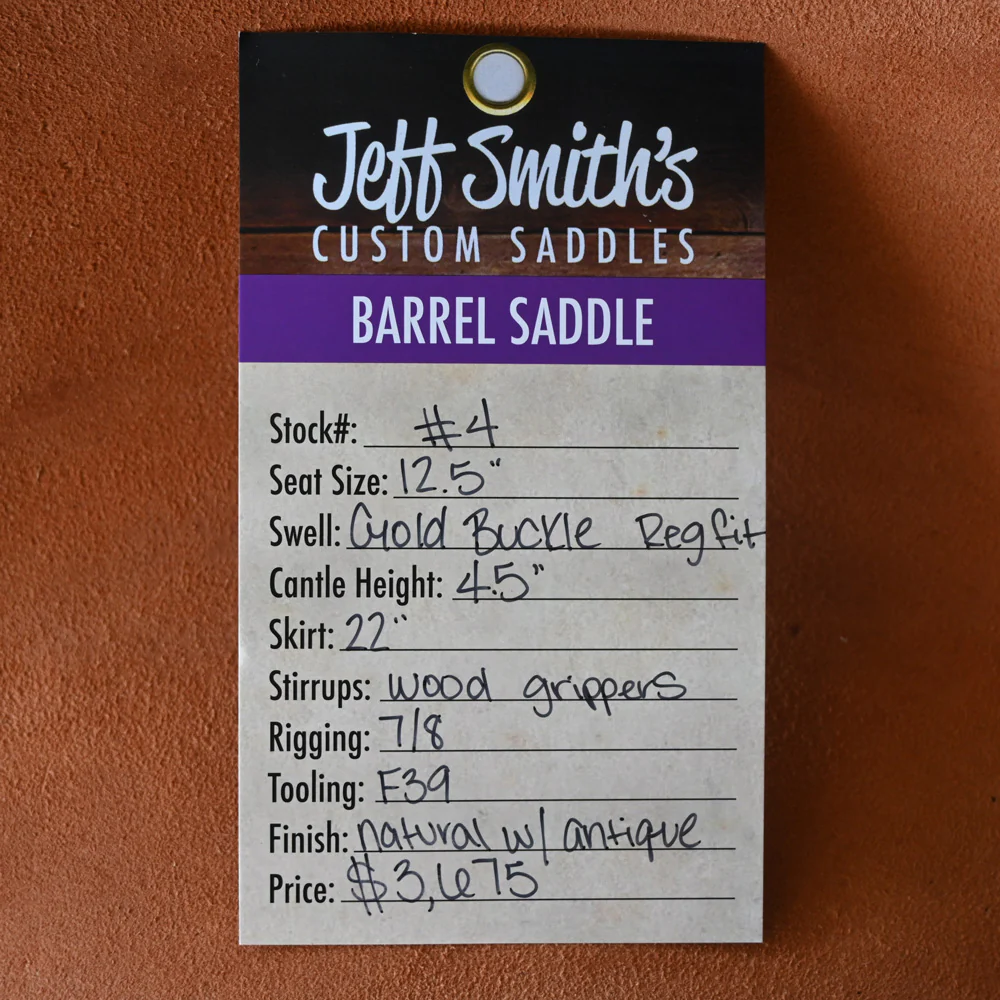 Jeff Smith's
CUSTOM SADDLES
BARREL SADDLE
Stock#: #4
Seat Size: 12.5"
Swell: Gold Buckle Reg fit
Cantle Height: 4.5"
Skirt: 22"
Stirrups: wood grippers
Rigging: 7/8
Tooling: F39
Finish: natural w/ antique
Price: $3,675